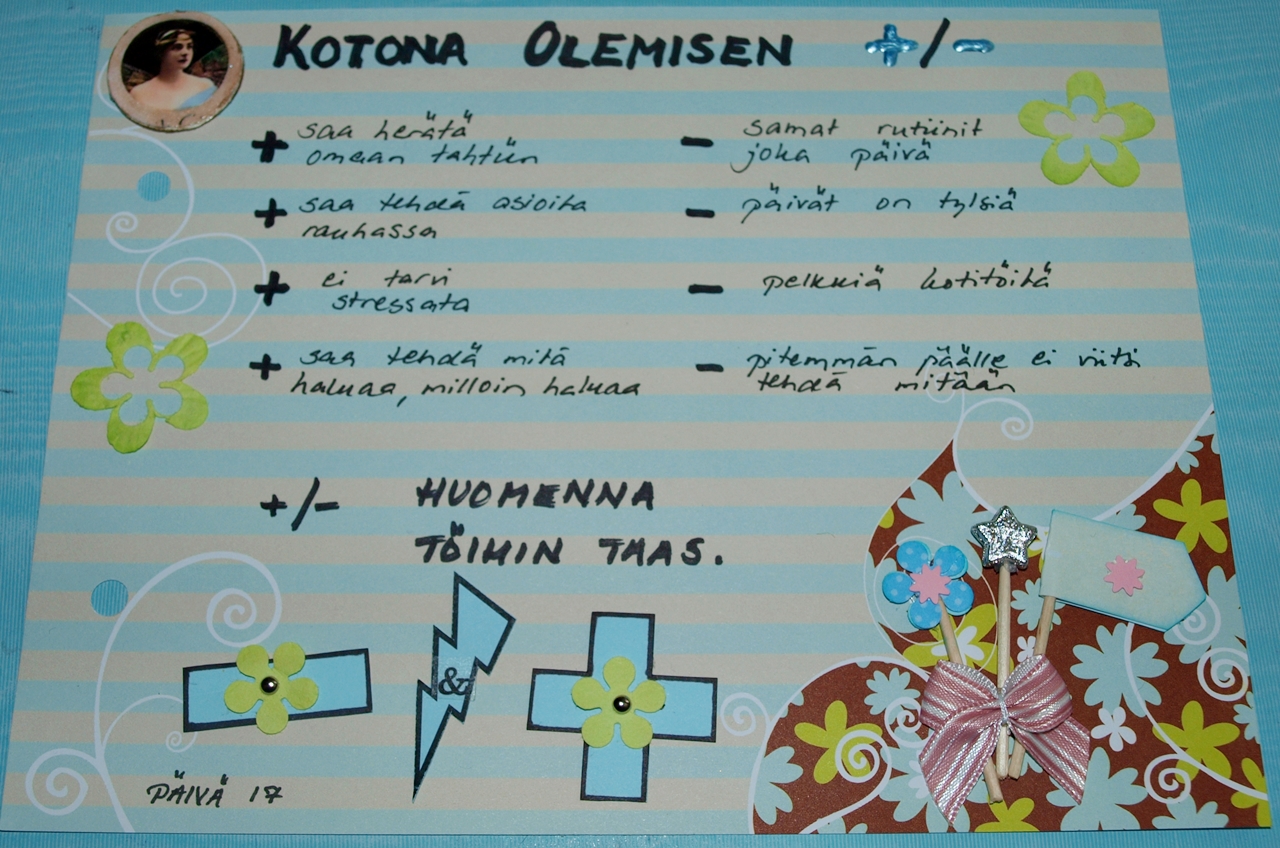 KOTONA OLEMISEN +/-
+ saa herätä
omaan tahtiin
+ saa tehdä asioita
rauhassa
+ ei tarvi
stressata
+ saa tehdä mitä
haluaa, milloin haluaa
- samat rutiinit
joka päivä
- päivät on tylsiä
- pelkkiä kotitöitä
- pitemmän päälle ei viitsi
tehdä mitään
+/- HUOMENNA
TÖIHIN TAAS.
&
PÄIVÄ 17